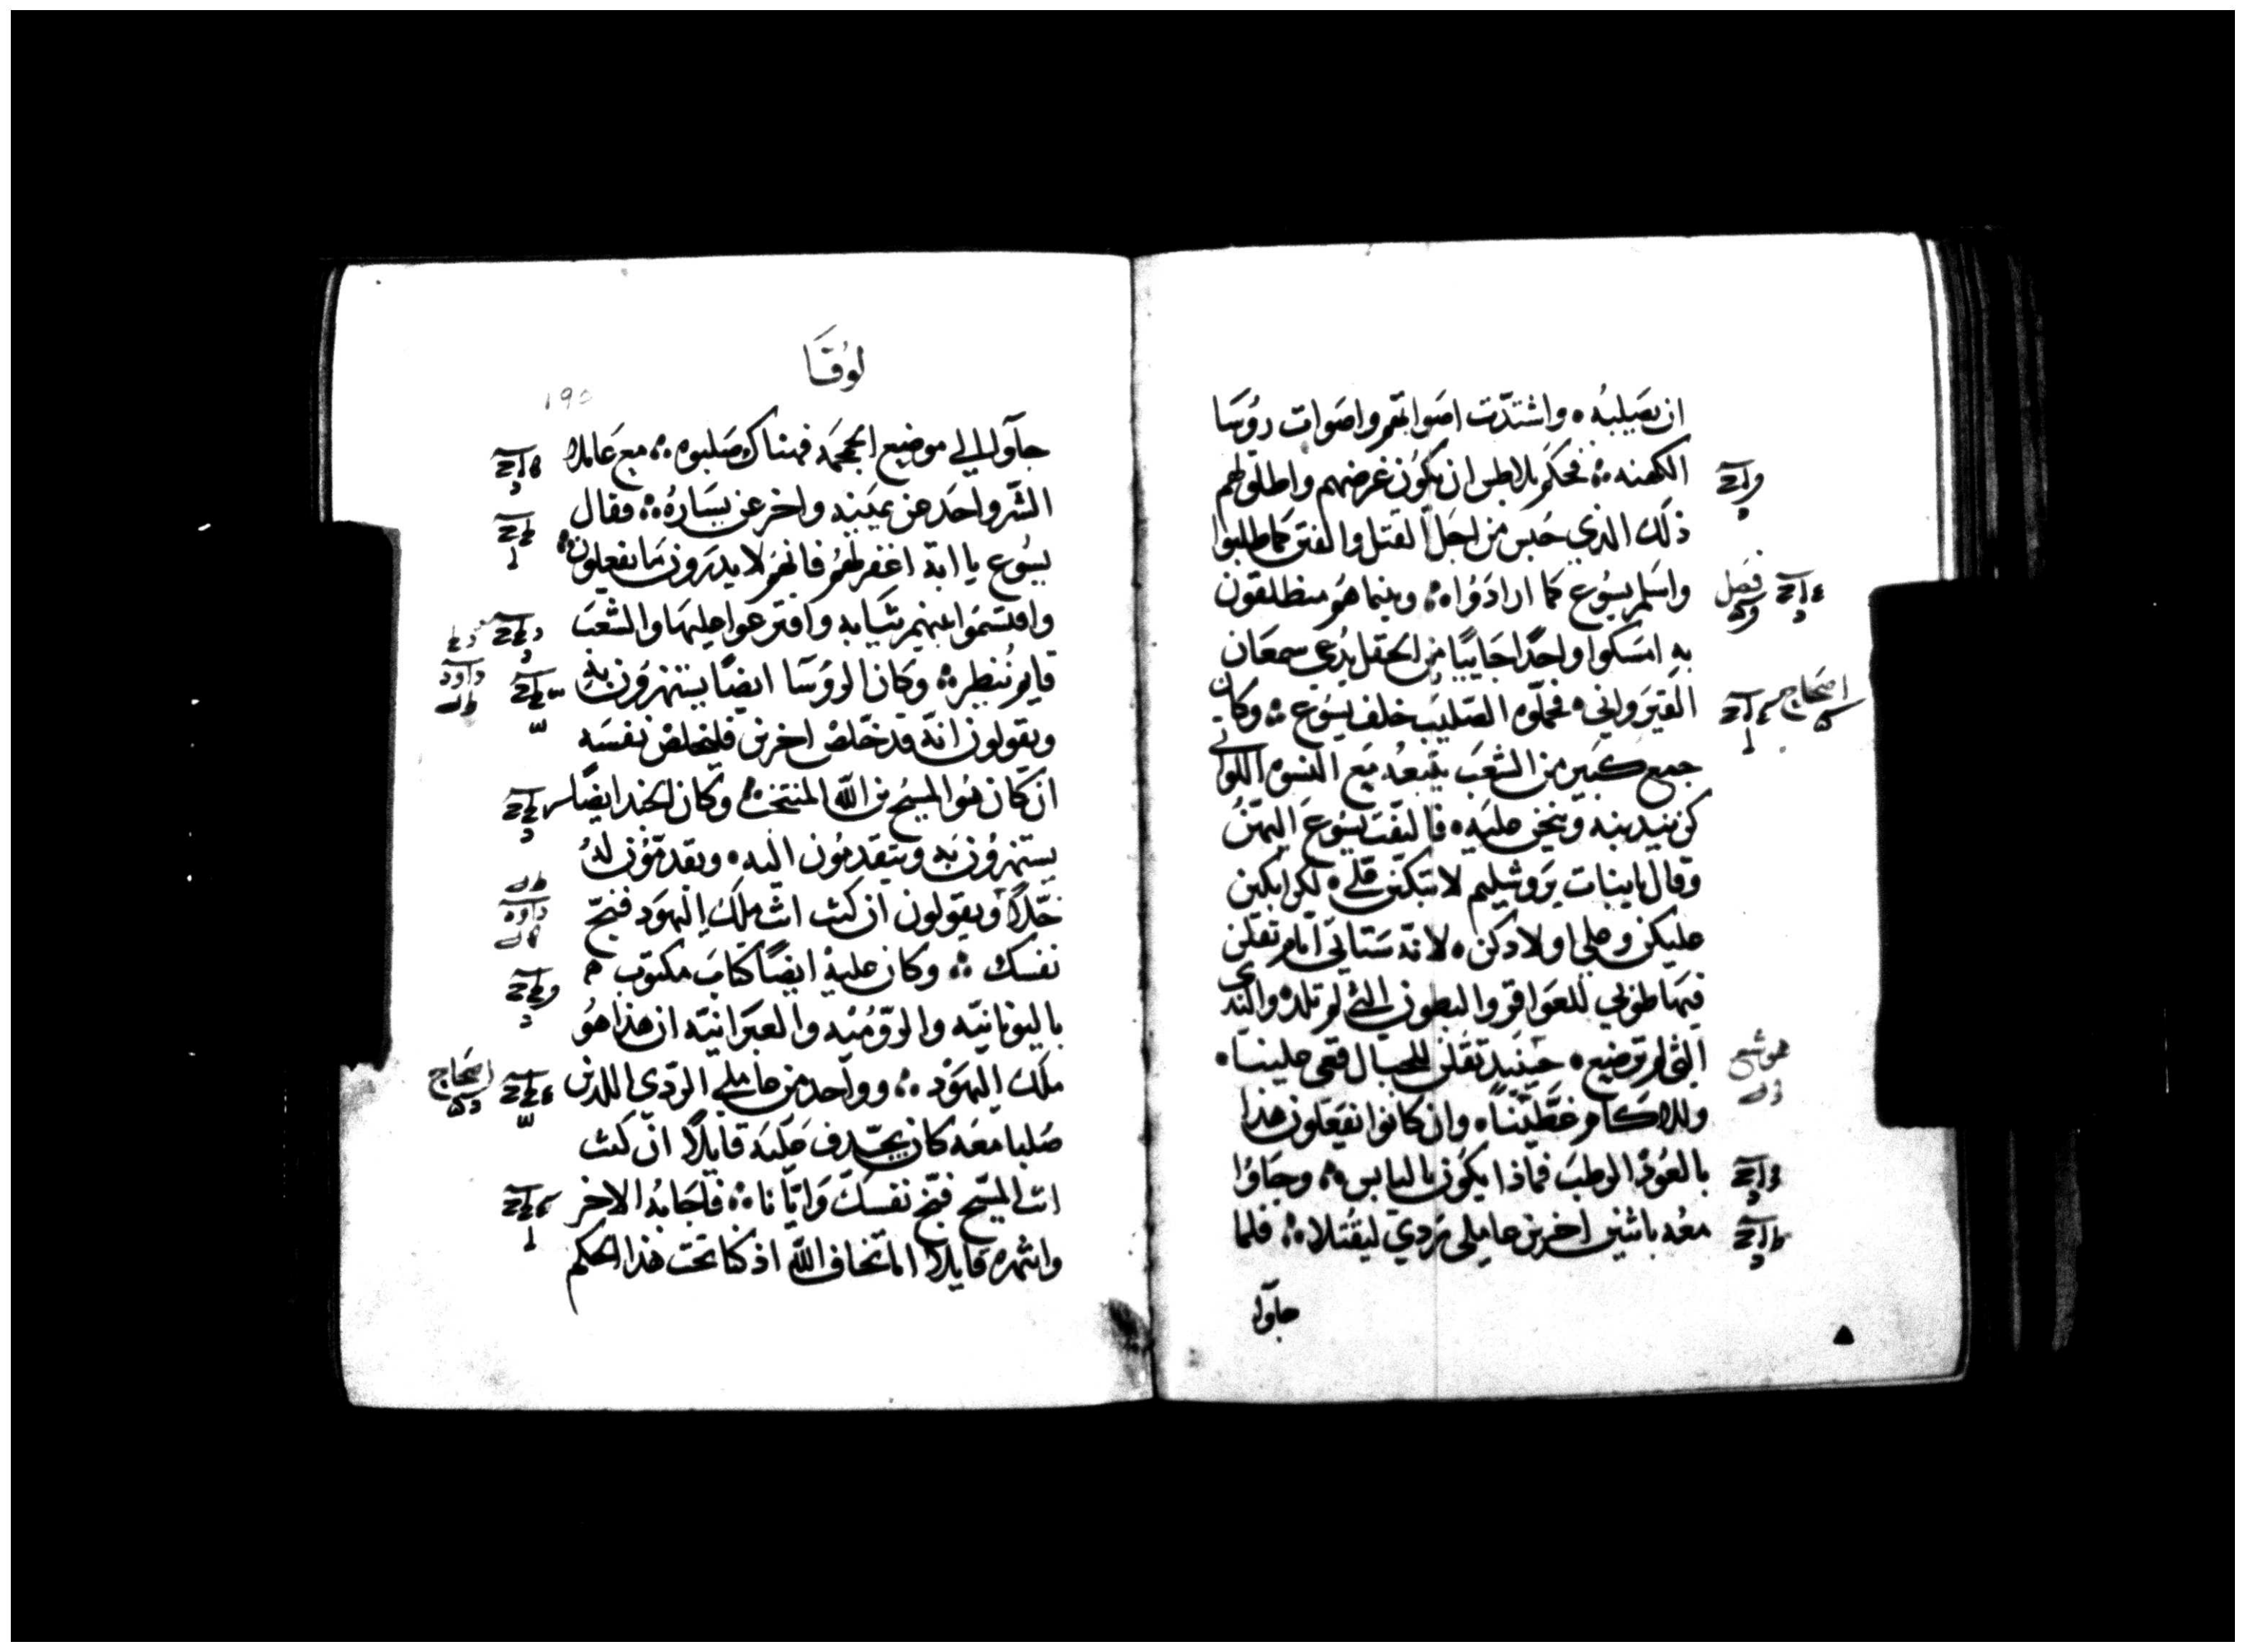 ان يصلبوه واشتدت اصواتهم واصوات روسا
الكهنه فحكم بلاطس ان يكون غرضهم واطلق لهم
ذلك الذي حبس من اجل القتل والفتن كما طلبوا
واسلم يسوع كما ارادوا وبينما هو منطلقون
به امسكوا واحدا جاييا من الحقل يدعي سمعان
القيرواني فحملوه الصليب خلف يسوع وكان
جمع كبير من الشعب يتبعه مع النسوه اللواتي
كن يندبنه وينحن عليه فالتفت يسوع اليهن
وقال يا بنات يروشليم لا تبكين علي لكن ابكين
عليكن وعلي اولادكن لانه ستاتي ايام تقلن
فيها طوبي للعواقر والبطون التي لم تلد والثدي
التي لم ترضع حينيد تقلن للجبال قعي علينا
وللاكام غطينا وان كانوا يفعلون هذا
بالعود الرطب فماذا يكون باليابس وجاوا
معه باثنين اخرين عاملي ردي ليقتلا فلما
جاوا
فصل
اصحاح
هوشع
لوقا
١٩٥
جاوا الي موضع الجمجمه فهناك صلبوه مع عاملا
الشر واحد عن يمينه واخر عن يساره فقال
يسوع يا ابة اغفر لهم فانهم لا يدرون ما يفعلون
واقتسموا بينهم ثيابه واقترعوا عليها والشعب
قايم ينظر وكان الروسا ايضا يستهزون به
ويقولون انه قد خلص اخرين فليخلص نفسه
ان كان هو المسيح من الله المنتخب وكان الجند ايضا
يستهزون به ويتقدمون اليه ويقدمون له
خلا ويقولون ان كنت انت ملك اليهود فنج
نفسك وكان عليه ايضا كتاب مكتوب
باليونانيه والروميه والعبرانيه ان هذا هو
ملك اليهود وواحد من عاملي الردي اللذين
صلبا معه كان يجدف عليه قايلا ان كنت
انت المسيح فنج نفسك وايانا فاجابه الاخر
وانتهره قايلا اما تخاف الله اذ كنا تحت هذا الحكم
داود
داود
اصحاح